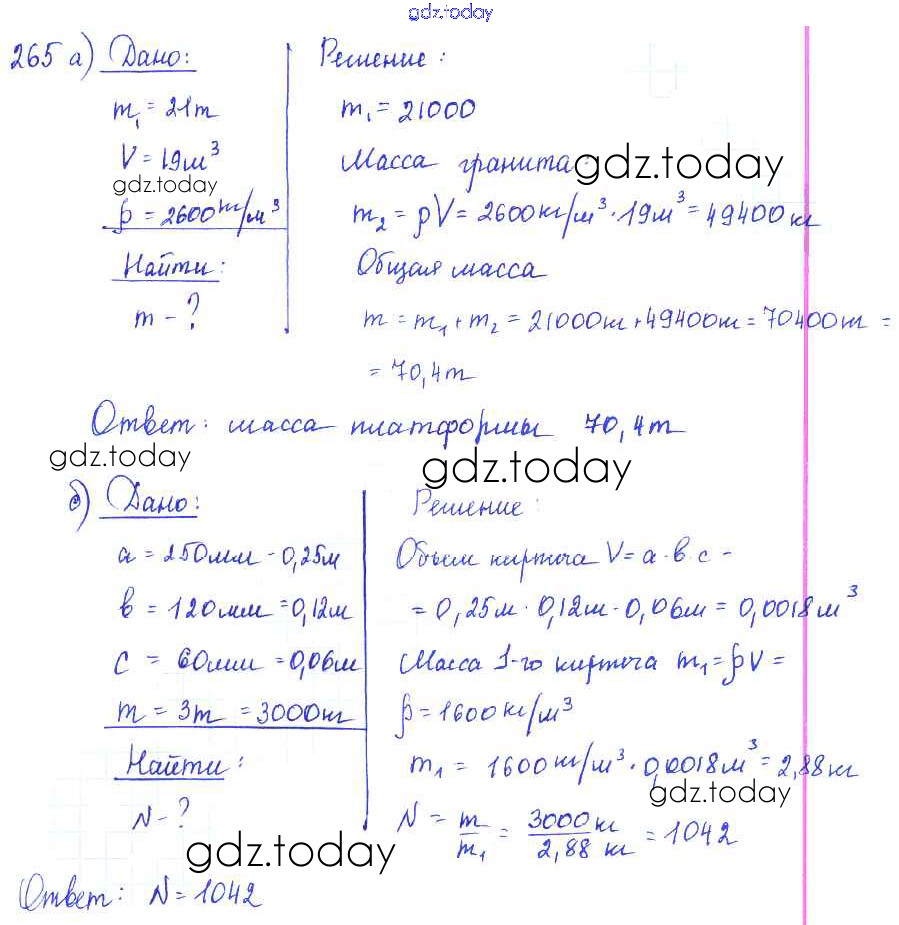 gdz.today
265 а) Дано:
m₁ = 21т
V = 19м³
gdz.today
ρ = 2600кг/м³
Найти:
m - ?
Решение:
m₁ = 21000
Масса гранита gdz.today
m₂ = ρV = 2600кг/м³ · 19м³ = 49400кг
Общая масса
m = m₁ + m₂ = 21000кг + 49400кг = 70400кг =
= 70,4т
Ответ: масса платформы 70,4т
gdz.today
gdz.today
б) Дано:
a = 250мм - 0,25м
b = 120мм = 0,12м
c = 60мм = 0,06м
m = 3т = 3000кг
Найти:
N - ?
Решение:
Объем кирпича V = a · b · c -
= 0,25м · 0,12м · 0,06м = 0,0018м³
Масса 1-го кирпича m₁ = ρV =
ρ = 1600кг/м³
m₁ = 1600кг/м³ · 0,0018м³ = 2,88кг
gdz.today
N = m/m₁ = 3000кг/2,88 кг = 1042
gdz.today
Ответ: N = 1042